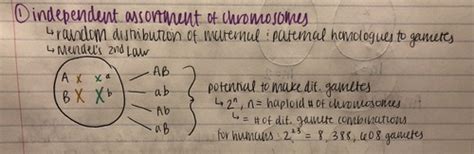 ① independent assortment of chromosomes
↳ random distribution of maternal : paternal homologues to gametes
↳ Mendel's 2nd Law
A x x a
B X X b
AB
ab
Ab
aB
potential to make dif. gametes
↳ 2ⁿ, n = haploid # of chromosomes
↳ = # of dif. gamete combinations
for humans: 2²³ = 8,388,608 gametes